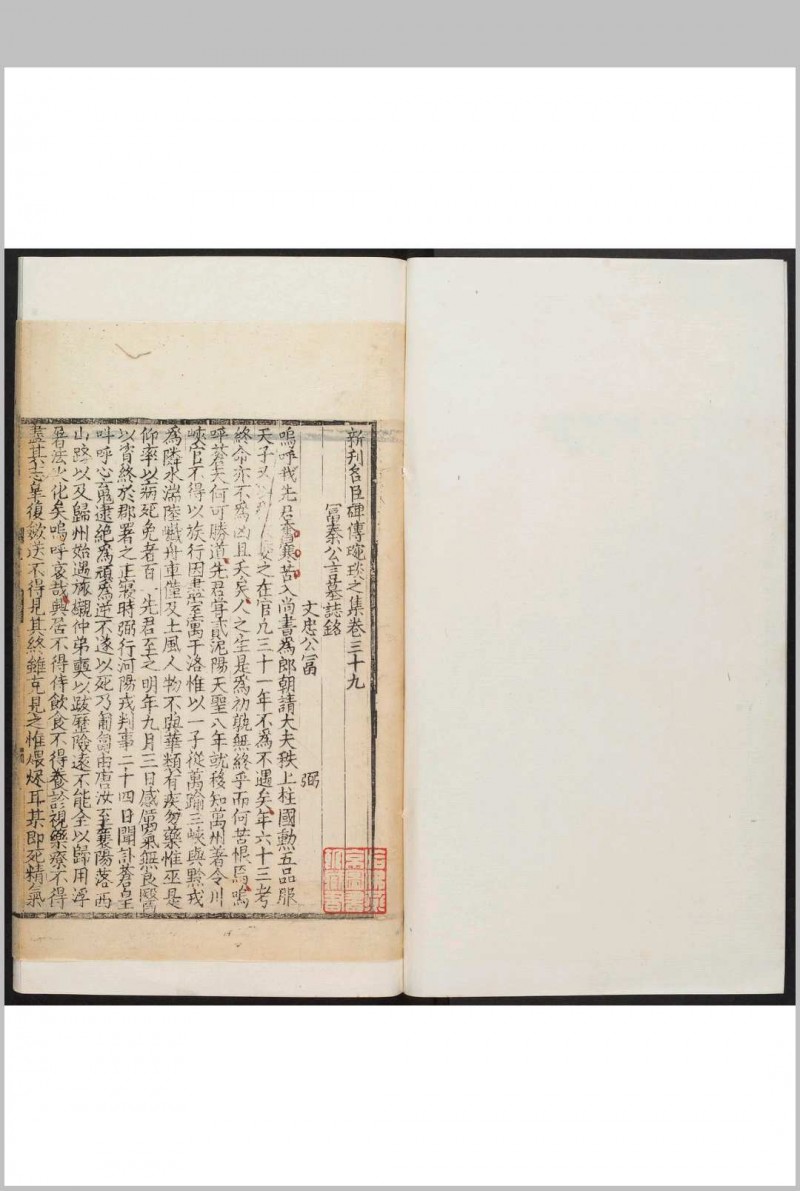 新刊名臣碑傳琬琰之集卷三十九
富秦公言墓誌銘
文忠公富　弼
嗚呼我先君奮寒苦入尚書為郎朝請大夫秩上柱國勳五品服
天子以之在官凡三十一年不為不遇矣年六十三考
終命亦不為凶且夭矣人之生是為初孰無終乎而何苦恨焉嗚
呼蒼天何可勝道先君官貳泥陽天聖八年就移知萬州著令川
峽官不得以族行因盡室寓于洛惟以一子從萬踰三峽與黔戎
為隣水湍陸巇舟車憧及土風人物不與華類有疾勿藥惟巫是
仰率以病死免者百一先君至之明年九月三日感癘氣無良醫
以胥終於郡署之正寢時弼行河陽戎判事二十四日聞訃蒼皇
叫呼心竁逮絕為頑為逆不遂以死乃匍匐南唐汝至襄陽落西
山路以及歸州始遇旅櫬仲弟奭以跋歷險遠不能全以歸用浮
屠法火化矣嗚呼哀哉興居不得侍飲食不得養診視藥療不得
盡其志皐復斂送不得見其終雖克見之惟煨燼耳某即死精氣